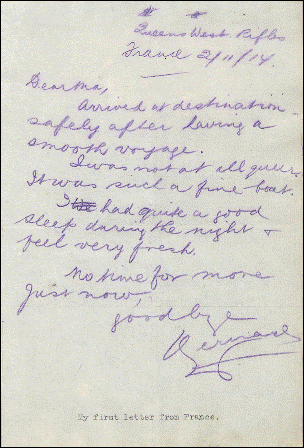 Queens West. Rifles
France 2/11/14.
Dear Ma,
Arrived at destination
safely after having a
smooth voyage.
I was not at all queer.
It was such a fine boat.
I had quite a good
sleep during the night &
feel very fresh.
No time for more
just now,
goodbye
Bernard
My first letter from France.